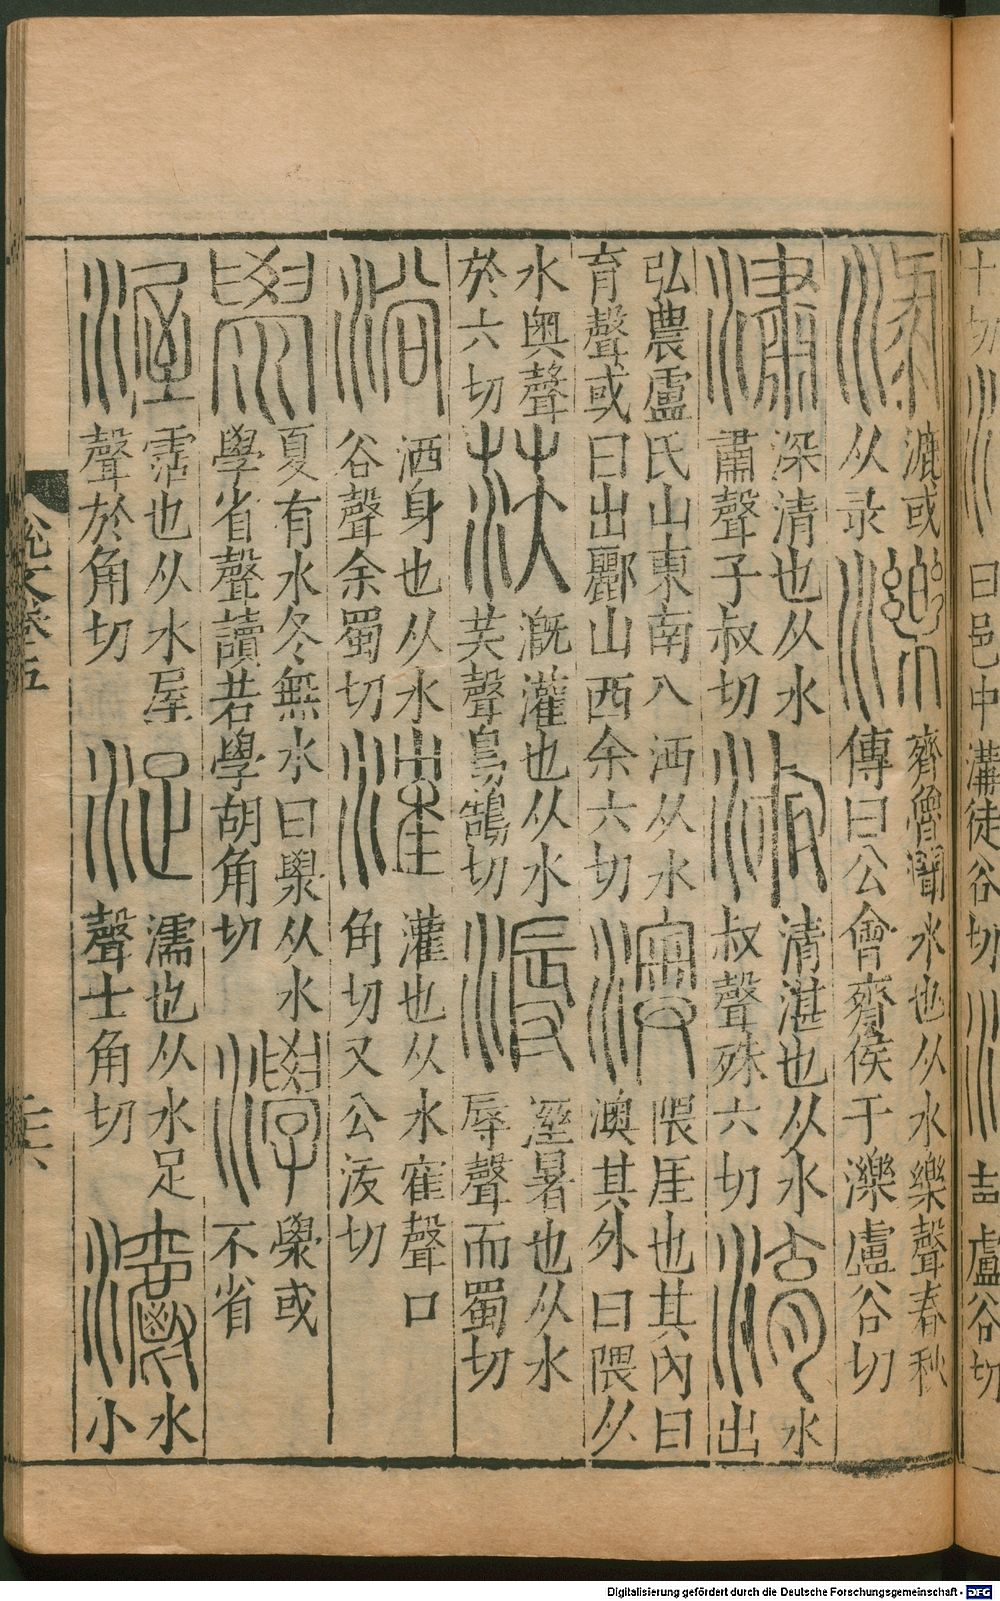 十切瀆曰邑中溝徒谷切
盧谷切
淥漉或从录濼齊魯閒水也从水樂聲春秋傳曰公會齊侯于濼盧谷切
潚深清也从水肅聲子叔切淑清湛也从水叔聲殊六切淯水出
弘農盧氏山東南入沔从水育聲或曰出酈山西余六切澳隈厓也其內曰澳其外曰隈从
水奧聲於六切漢溉灌也从水芺聲烏鵠切溽溼暑也从水辱聲而蜀切
浴洒身也从水谷聲余蜀切㴶灌也从水隺聲口角切又公沃切
澩夏有水冬無水曰澩从水學省聲讀若學胡角切澩或不省
渥霑也从水屋聲於角切浞濡也从水足聲士角切灂水小
說文卷五
Digitalisierung gefördert durch die Deutsche Forschungsgemeinschaft - DFG